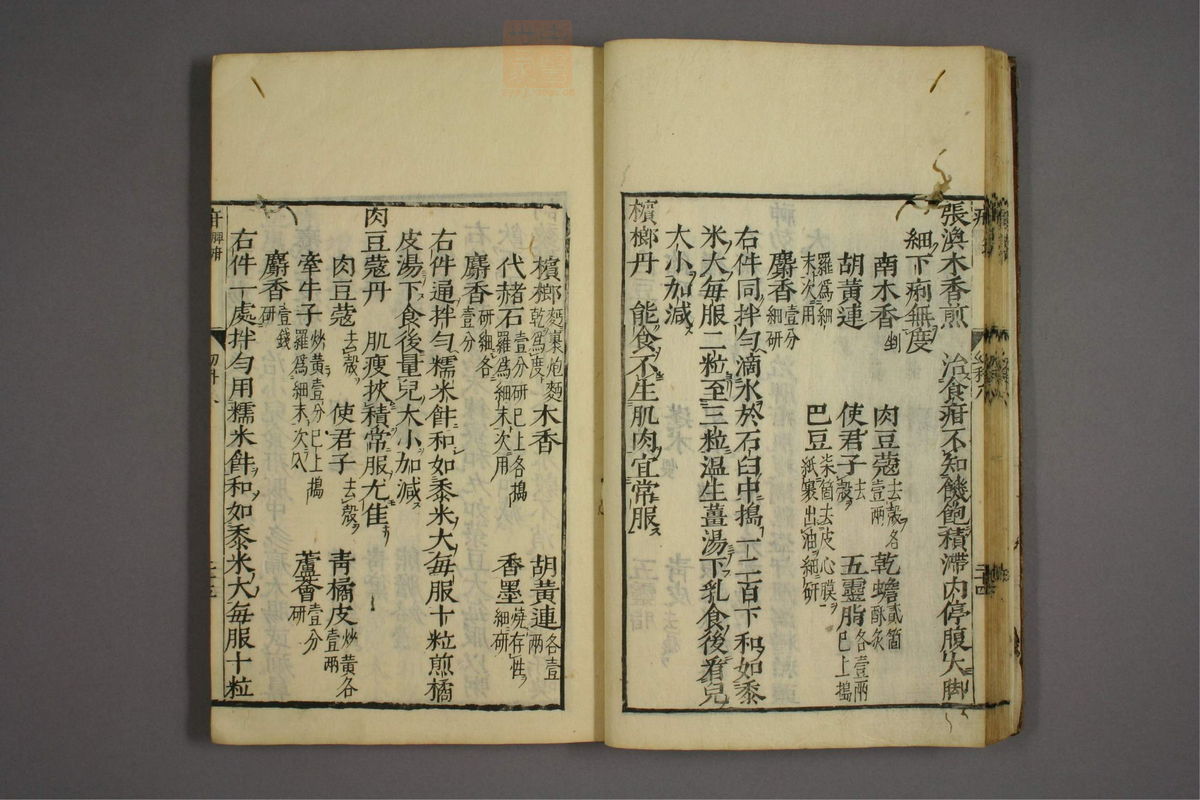 張渙木香煎　治食疳不知饑飽積滯内停腹大脚
細下痢無度
南木香　肉豆蔻去殼各壹兩　乾蟾貳箇酥炙
胡黄連　使君子去殼　五靈脂各壹兩已上搗
羅爲細末次用　巴豆柒箇去皮心膜紙裹出油細研
麝香壹分細研
右件同拌匀滴水於石臼中搗一二百下和如黍
米大每服二粒至三粒温生薑湯下乳食後看兒
大小加減
檳榔丹　能食不生肌肉宜常服
檳榔麵裹炮麵乾爲度　木香　胡黄連各壹兩
代赭石壹分研已上各搗羅爲細末次用　香墨燒存性細研
麝香研細各壹分
右件通拌匀糯米飰和如黍米大每服十粒煎橘
皮湯下食後量兒大小加減
肉豆蔻丹　肌瘦挾積常服尤佳
肉豆蔻去殼　使君子去殼　青橘皮炒黄各壹兩
牽牛子炒黄壹分已上搗羅爲細末次入　蘆薈壹分研
麝香壹錢研
右件一處拌匀用糯米飰和如黍米大每服十粒